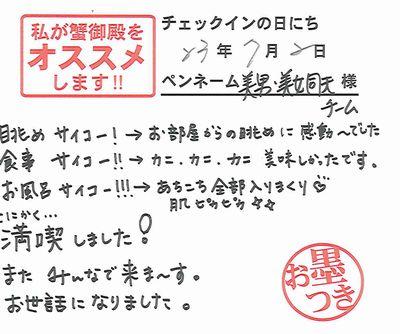 私が蟹御殿を
オススメ
します!!
チェックインの日にち
23年7月2日
ペンネーム 美男・美女同天 様
チーム
眺め サイコー!→お部屋からの眺めに感動〜でした
食事 サイコー!!→カニ.カニ.カニ 美味しかったです。
お風呂 サイコー!!!→あちこち全部入りまくり♡
肌ピカピカ☆☆
とにかく…
満喫しました!
また みんなで来ま〜す。
お世話になりました。
お墨
つき